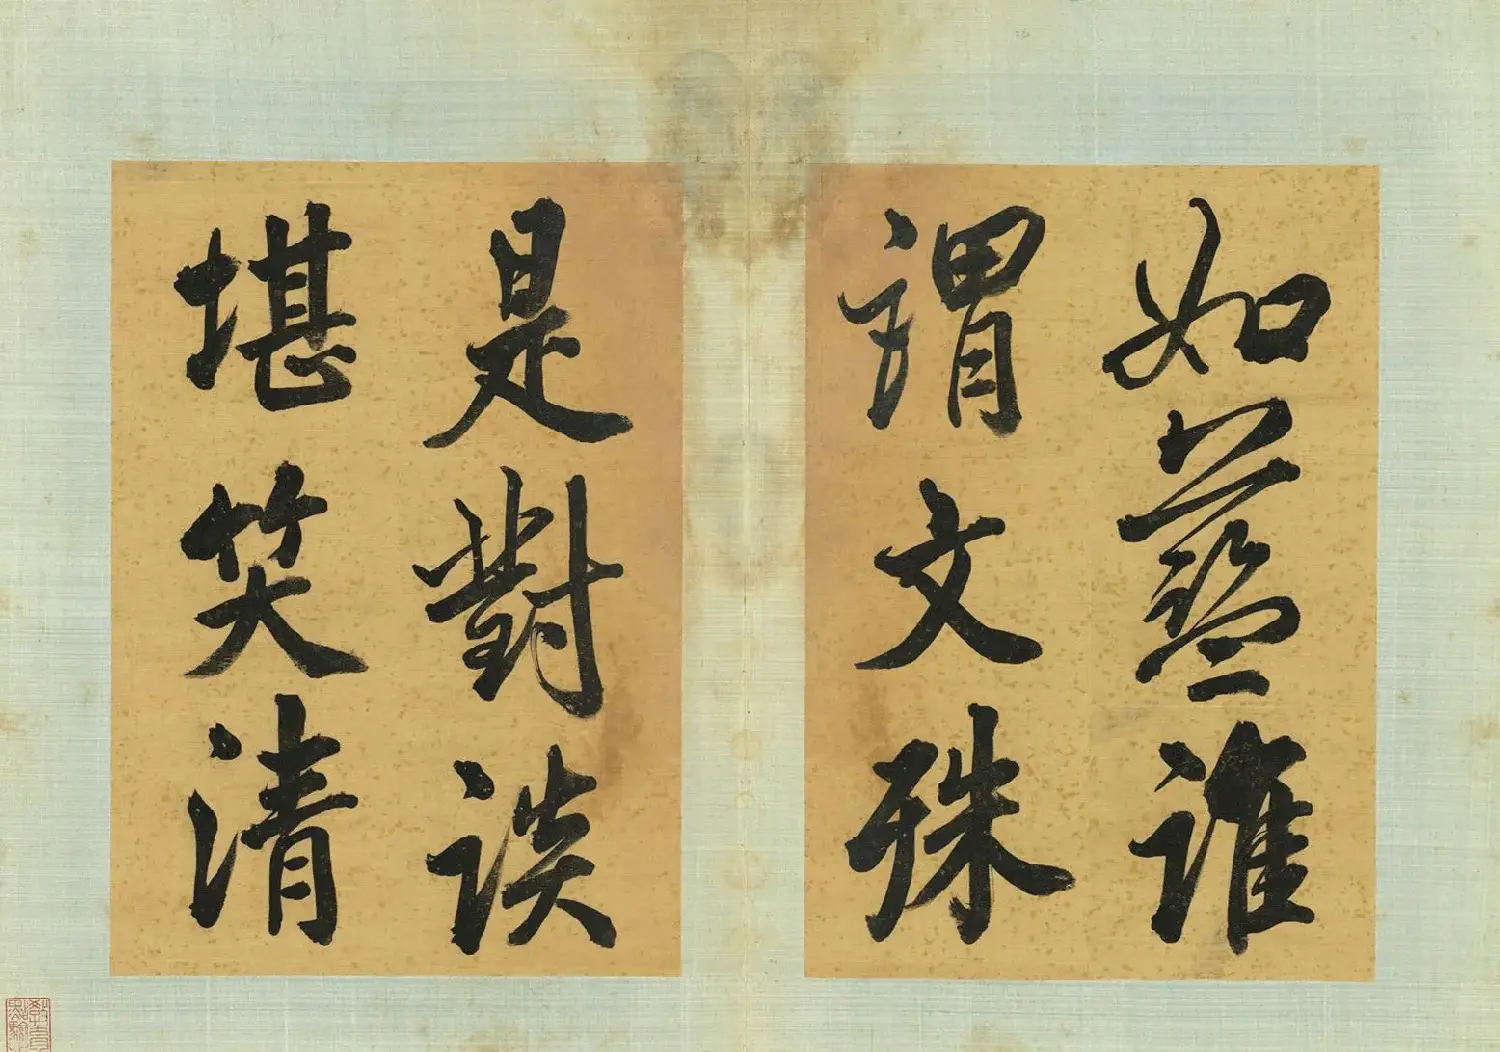 如蓝谁
謂文殊
是對談
堪笑清